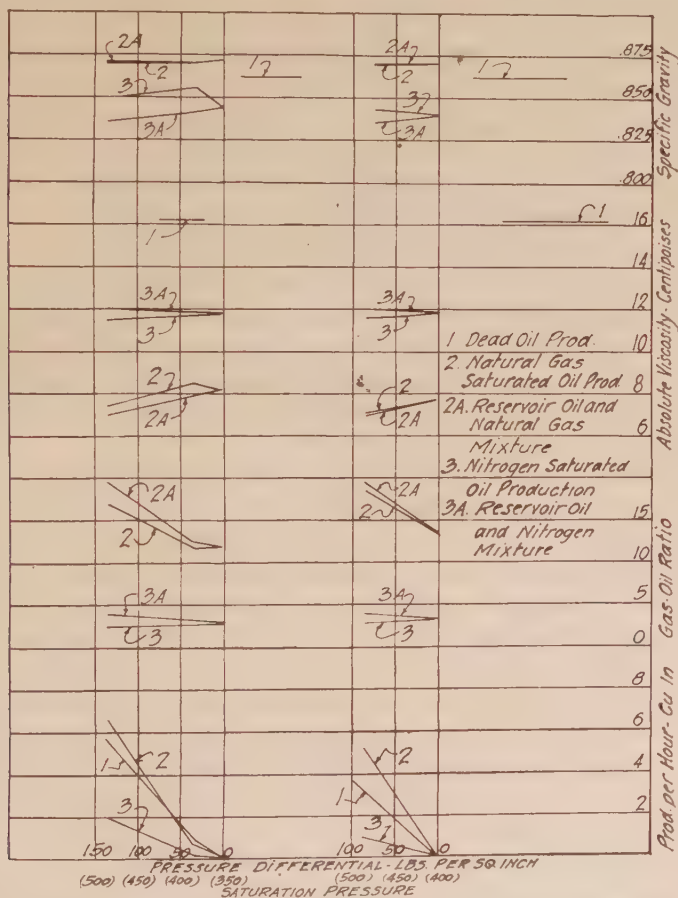 2A
2
3
3A
1
2A
2
3
3A
1
.875
.850
.825
.800
Specific Gravity
1
1
3A
3
3A
3
16
14
12
10
8
6
Absolute Viscosity - Centipoises
1 Dead Oil Prod.
2. Natural Gas
Saturated Oil Prod
2A. Reservoir Oil and
Natural Gas
Mixture
3. Nitrogen Saturated
Oil Production
3A. Reservoir Oil
and Nitrogen
Mixture
2
2A
2
2A
2A
2
2A
2
3A
3
3A
3
15
10
5
0
Gas-Oil Ratio
2
1
3
2
1
3
8
6
4
2
Prod. per Hour - Cu In
150 100 50 0 100 50 0
PRESSURE DIFFERENTIAL - LBS. PER SQ. INCH
(500) (450) (400) (350) (500) (450) (400)
SATURATION PRESSURE